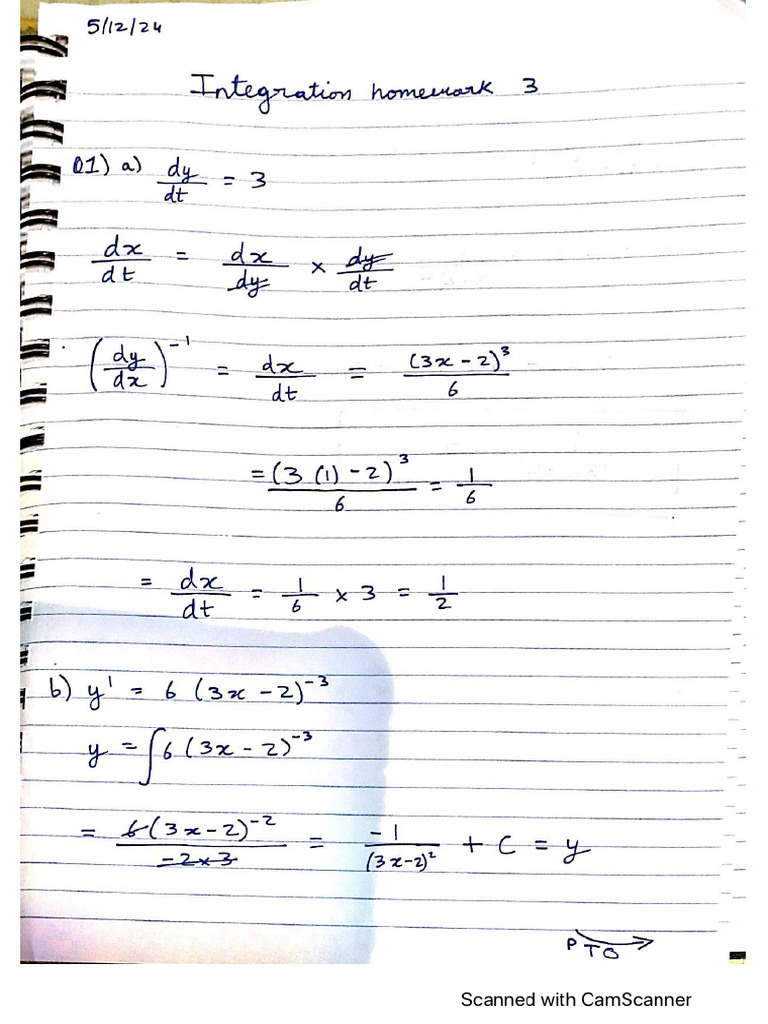 5/12/24
Integration homework 3
Q1) a) dy/dt = 3
dx/dt = dx/dy × dy/dt
(dy/dx)^-1 = dx/dt = (3x-2)^3/6
= (3(1)-2)^3/6 = 1/6
= dx/dt = 1/6 × 3 = 1/2
b) y' = 6(3x-2)^-3
y = ∫6(3x-2)^-3
= 6(3x-2)^-2/-2×3 = -1/(3x-2)^2 + C = y
PTO →
Scanned with CamScanner